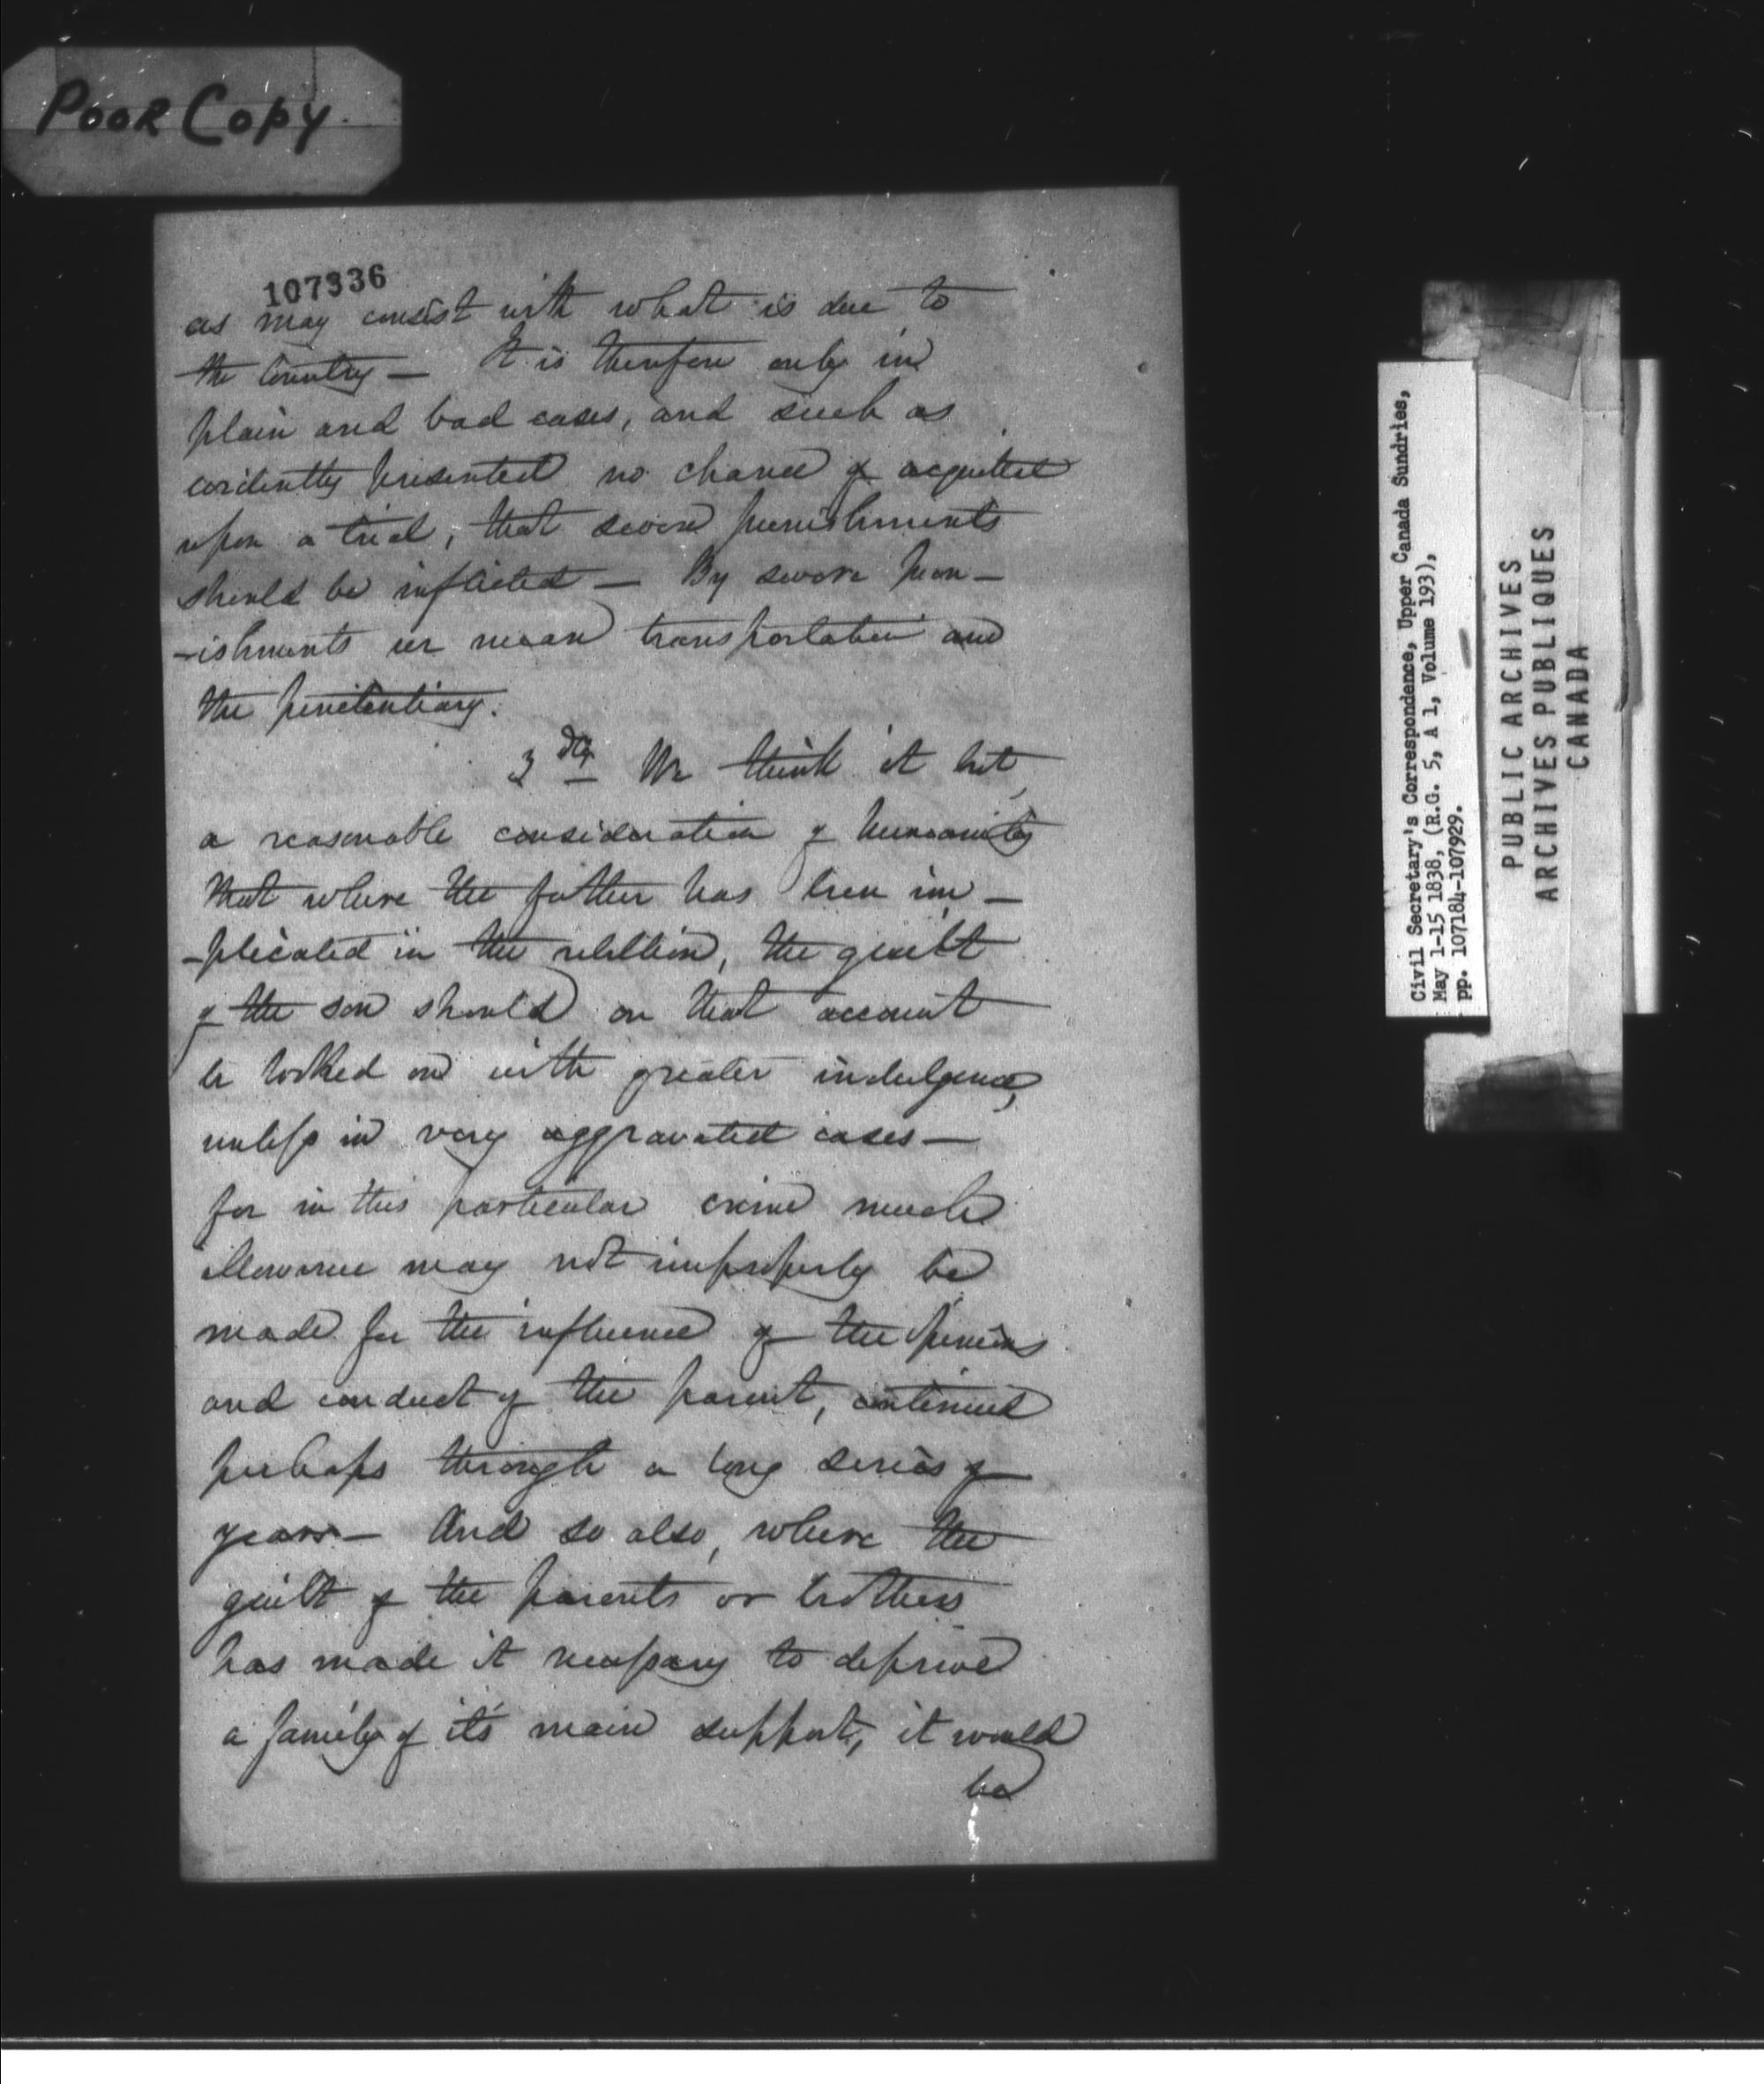 Poor Copy.
107336
as may consist with what is due to
the Country — It is therefore only in
plain and bad cases, and such as
evidently presented no chance of acquittal
upon a trial, that severe punishments
should be inflicted — By severe pun-
-ishments we mean transportation and
the penitentiary.
3dly We think it but
a reasonable consideration of humanity
that where the father has been im-
-plicated in the rebellion, the guilt
of the son should on that account
be looked on with greater indulgence,
unless in very aggravated cases —
for in this particular crime much
allowance may not improperly be
made for the influence of the opinions
and conduct of the parent, continued
perhaps through a long series of
years — And so also, where the
guilt of the parents or brothers
has made it necessary to deprive
a family of it's main support, it would
be
Civil Secretary's Correspondence, Upper Canada Sundries,
May 1-15 1838, (R.G. 5, A 1, Volume 193),
pp. 107184-107929.
PUBLIC ARCHIVES
ARCHIVES PUBLIQUES
CANADA